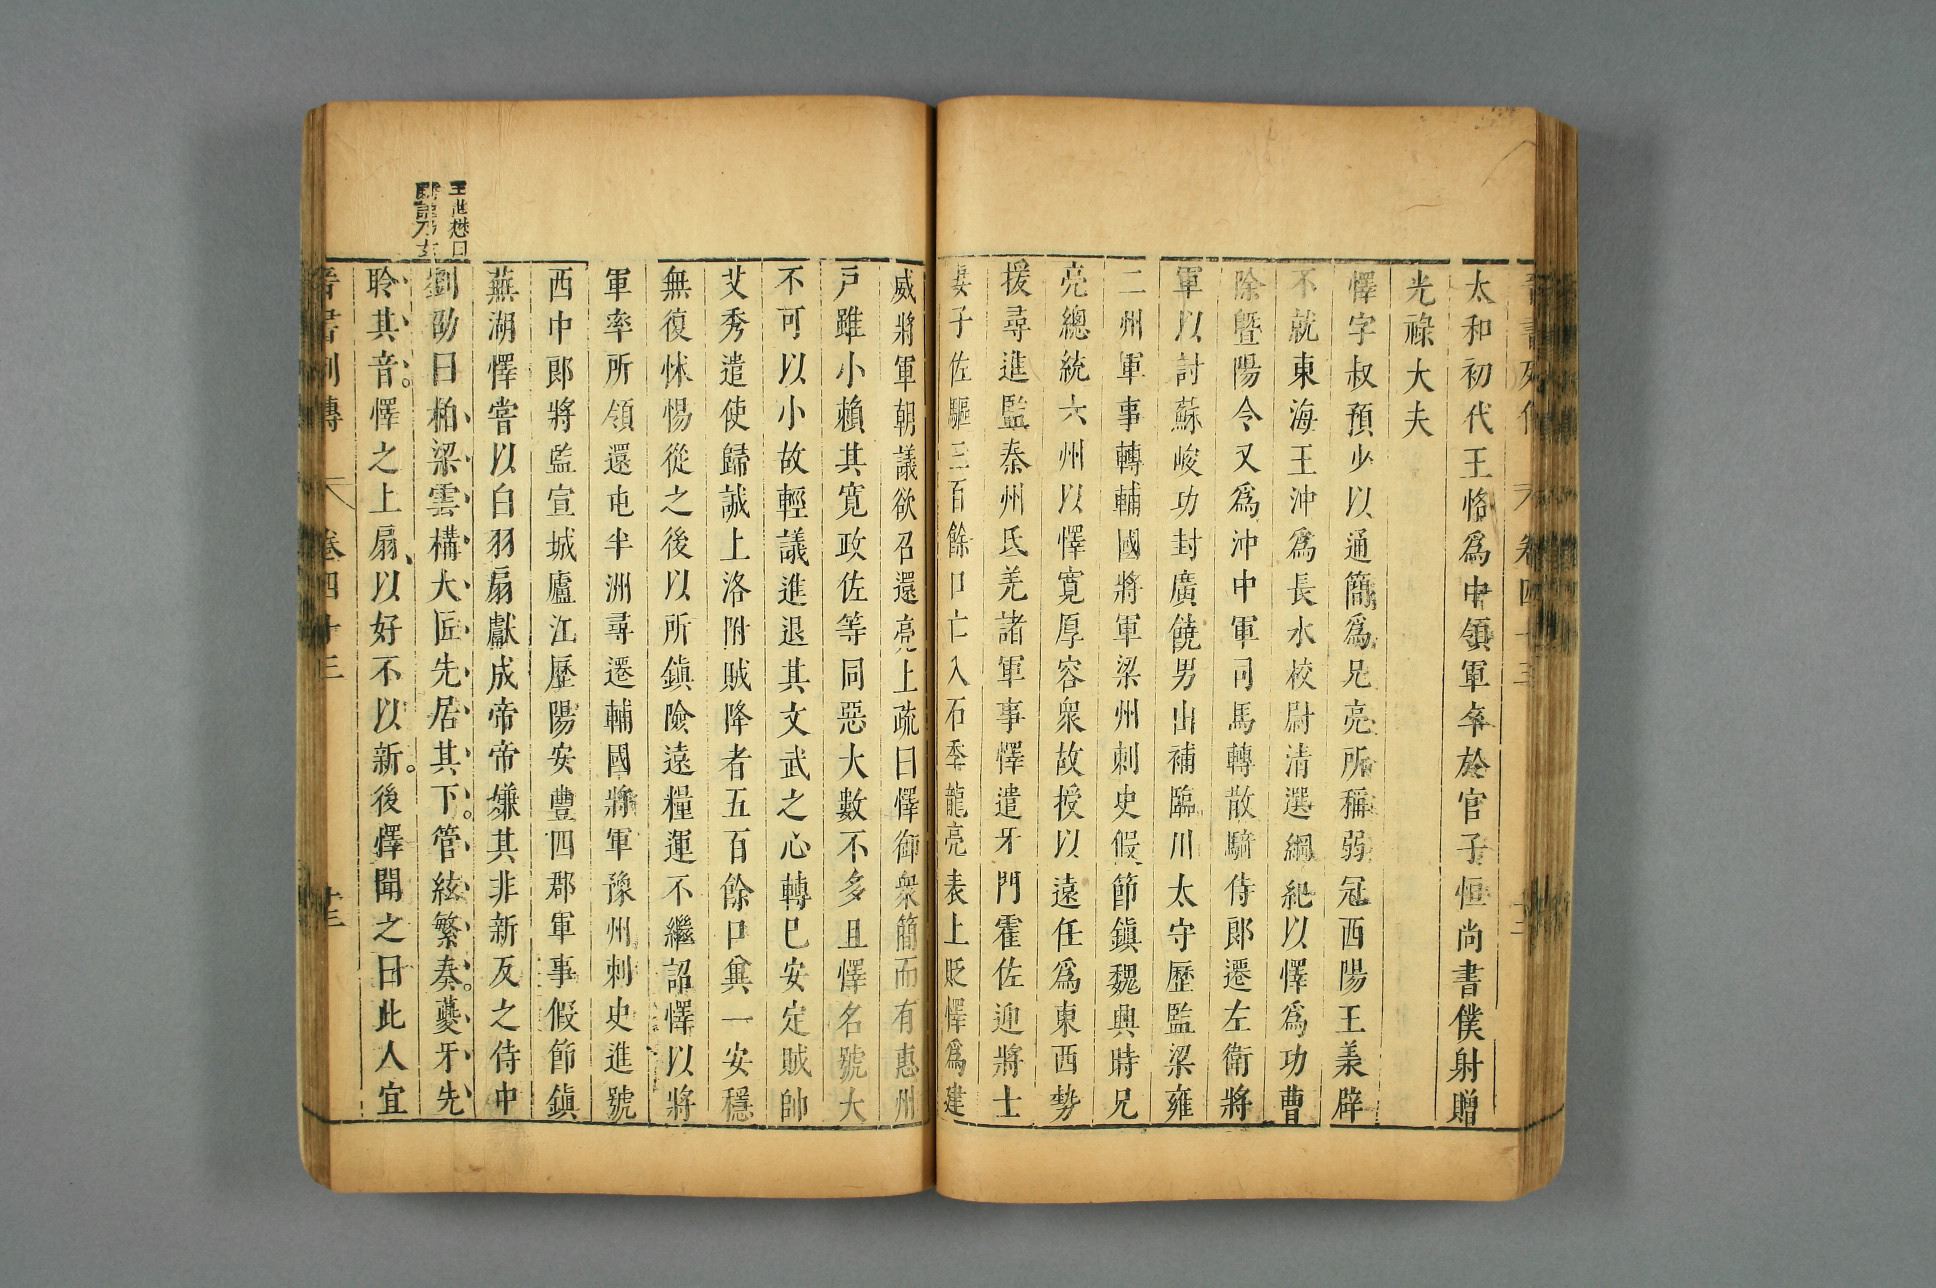 太和初代王恪爲中領軍卒於官子恒尚書僕射贈
光祿大夫
懌字叔預少以通簡爲兄亮所稱弱冠西陽王羕辟
不就東海王沖爲長水校尉清選綱紀以懌爲功曹
除曁陽令又爲沖中軍司馬轉散騎侍郎遷左衛將
軍以討蘇峻功封廣饒男出補臨川太守歷監梁雍
二州軍事轉輔國將軍梁州刺史假節鎮魏興時兄
亮總統六州以懌寛厚容衆故授以遠任爲東西勢
援尋進監秦州氐羌諸軍事懌遣牙門霍佐迎將士
妻子佐驅三百餘口亡入石季龍亮表上貶懌爲建
威將軍朝議欲召還亮上疏曰懌御衆簡而有惠州
戸雖小賴其寛政佐等同惡大數不多且懌名號大
不可以小故輕議進退其文武之心轉已安定賊帥
艾秀遣使歸誠上洛附賊降者五百餘口兾一安穩
無復怵惕從之後以所鎮險遠糧運不繼詔懌以將
軍率所領還屯半洲尋遷輔國將軍豫州刺史進號
西中郎將監宣城廬江歷陽安豐四郡軍事假節鎮
蕪湖懌嘗以白羽扇獻成帝帝嫌其非新反之侍中
王世懋曰
劉劭曰柏梁雲構大匠先居其下。管絃繁奏。夔牙先
聆其音。懌之上扇、以好不以新。後懌聞之曰此人宜
晋書列傳 卷四十三 十三